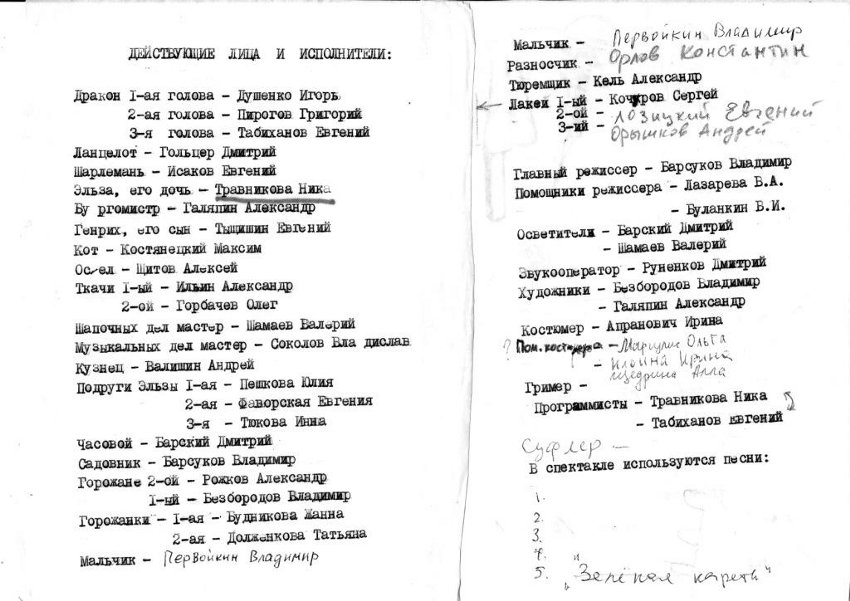 ДЕЙСТВУЮЩИЕ ЛИЦА И ИСПОЛНИТЕЛИ:
Дракон 1-ая голова – Душенко Игорь
2-ая голова – Пирогов Григорий
3-я голова – Табиханов Евгений
Ланцелот – Гольцер Дмитрий
Шарлемань – Исаков Евгений
Эльза, его дочь – Травникова Ника
Бу ргомистр – Галяпин Александр
Генрих, его сын – Тыщишин Евгений
Кот – Костянецкий Максим
Осел – Щитов Алексей
Ткачи 1-ый – Ильин Александр
2-ой – Горбачев Олег
Шапочных дел мастер – Шамаев Валерий
Музыкальных дел мастер – Соколов Вла дислав
Кузнец – Валишин Андрей
Подруги Эльзы 1-ая – Пешкова Юлия
2-ая – Фаворская Евгения
3-я – Тюкова Инна
Часовой – Барский Дмитрий
Садовник – Барсуков Владимир
Горожане 2-ой – Рожков Александр
1-ый – Безбородов Владимир
Горожанки – 1-ая – Будникова Жанна
2-ая – Долженкова Татьяна
Мальчик – Первойкин Владимир
Мальчик – Первойкин Владимир
Разносчик – Орлов Константин
Тюремщик – Кель Александр
Лакей 1-ый – Кочуров Сергей
2-ой – Лозицкий Евгений
3-ий – Орышков Андрей
Главный режиссер – Барсуков Владимир
Помощники режиссера – Лазарева В.А.
– Буланкин В.И.
Осветители – Барский Дмитрий
– Шамаев Валерий
Звукооператор – Руненков Дмитрий
Художники – Безбородов Владимир
– Галяпин Александр
Костюмер – Апранович Ирина
? Пом. костюмера – Ольга
– Ильина Ирина
Щедрина Алла
Гример –
Программисты – Травникова Ника
– Табиханов Евгений
Суфлер –
В спектакле используются песни:
1.
2.
3.
4. "
5. "Зелёная карета"